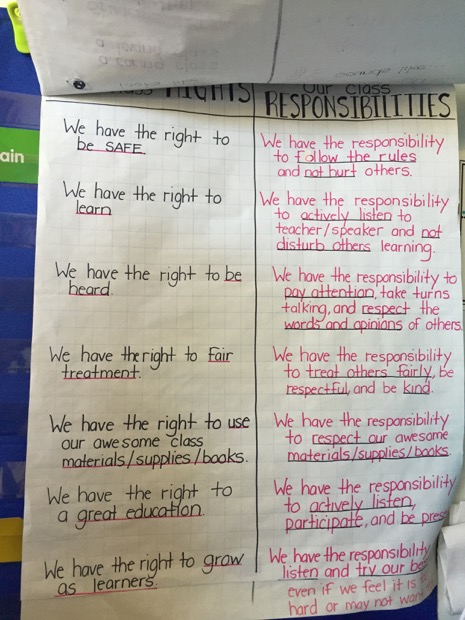 ain
RIGHTS
We have the right to
be SAFE.
We have the right to
learn
We have the right to be
heard.
We have the right to fair
treatment.
We have the right to use
our awesome class
materials/supplies/books.
We have the right to
a great education.
We have the right to grow
as learners.
Our Class
RESPONSIBILITIES
We have the responsibility
to follow the rules
and not hurt others.
We have the responsibility
to actively listen to
teacher/speaker and not
disturb others learning.
We have the responsibility to
pay attention, take turns
talking, and respect the
words and opinions of others.
We have the responsibility
to treat others fairly, be
respectful, and be kind.
We have the responsibility
to respect our awesome
materials/supplies/books.
We have the responsibility
to actively listen,
participate, and be pres
We have the responsibility
listen and try our be
even if we feel it is
hard or may not wan